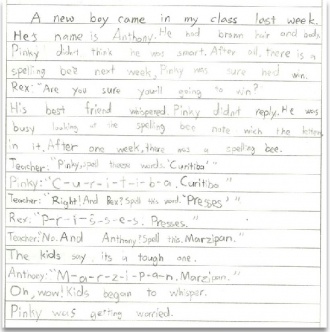 A new boy came in my class last week.
He's name is Anthony. He had brown hair and
Pinky didnt think he was smart. After all, there is a
spelling bee next week, Pinky was sure he'd win.
Rex: "Are you sure you'll going to win?
His best friend whispered. Pinky didn't reply. He was
busy looking at the spelling bee note with the letters
in it. After one week, there was a spelling bee.
Teacher: "Pinky, spell these words. 'Curitiba'"
Pinky: "C-u-r-i-t-i-b-a. Curitiba"
Teacher: "Right! And Rex? Spell this word. "Presses""
Rex: "P-r-i-s-s-e-s. Presses."
Teacher: "No. And Anthony? Spell this. Marzipan."
The kids say, its a tough one.
Anthony: "M-a-r-z-i-p-a-n. Marzipan."
Oh, wow! Kids began to whisper.
Pinky was getting worried.